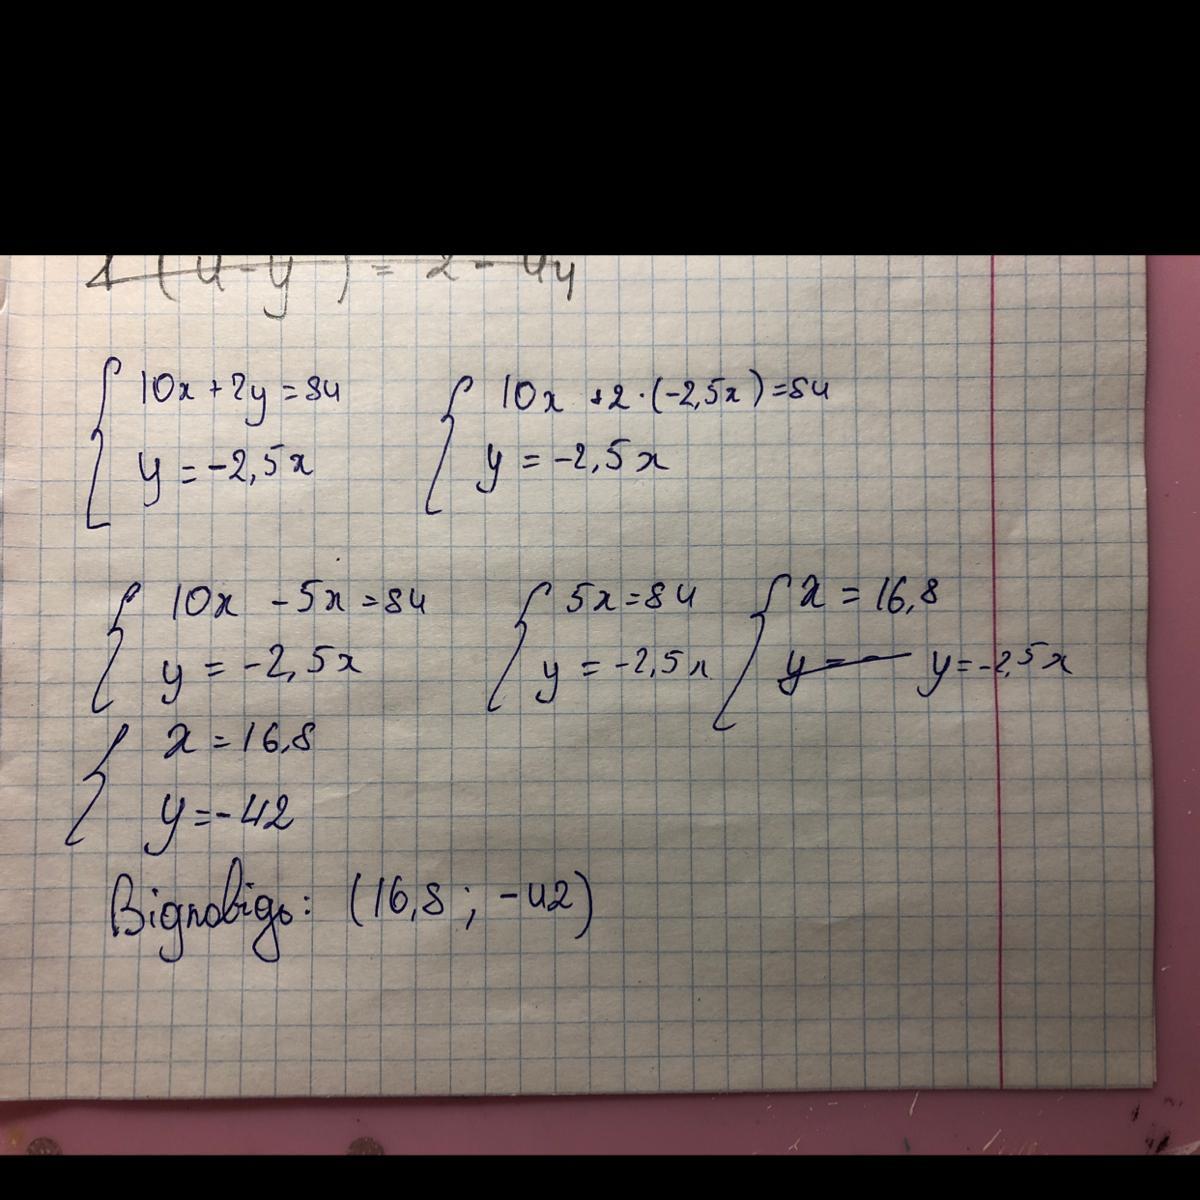 1 (4-y) = 2 - 4y
10x + 2y = 84
y = -2,5x
10x + 2 · (-2,5x) = 84
y = -2,5x
10x - 5x = 84
y = -2,5x
5x = 84
y = -2,5x
x = 16,8
y = - y = -2,5x
x = 16,8
y = -42
Відповідь: (16,8 ; -42)